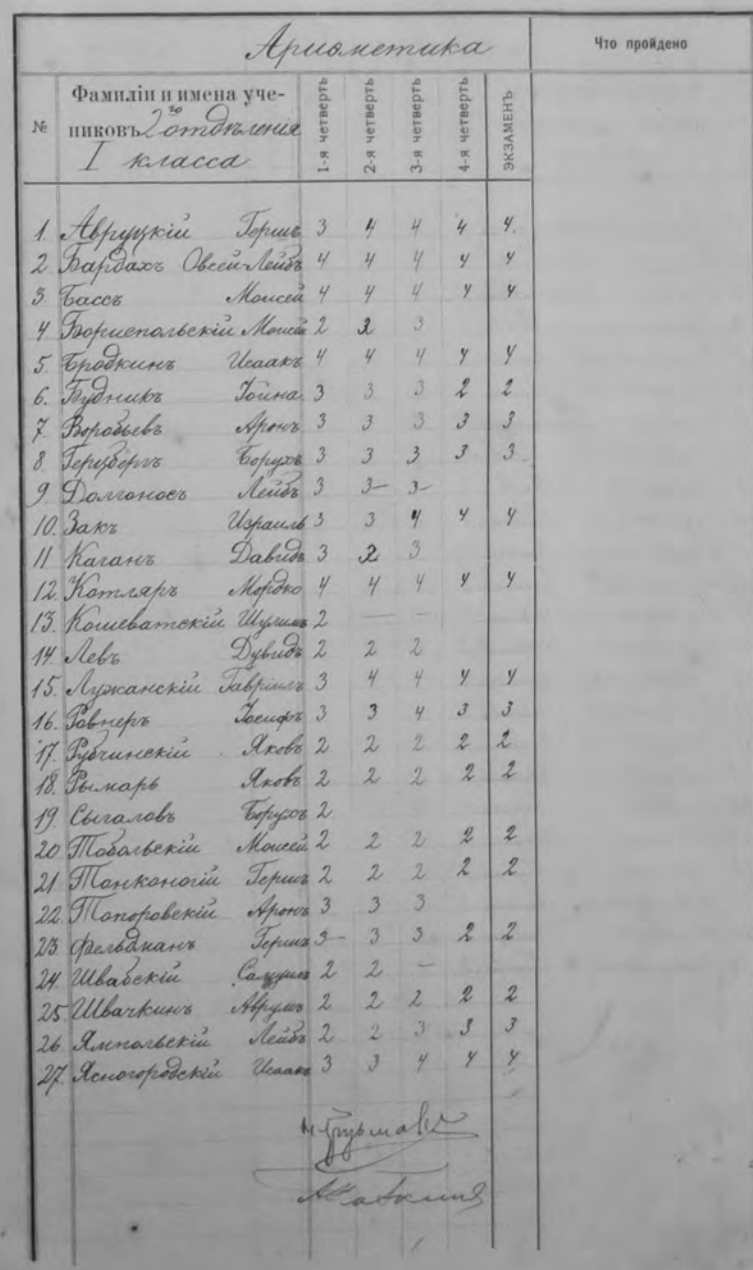 Ариѳметика
Что пройдено
№
Фамиліи и имена уче-
никовъ 2го отдѣленія
I класса
1-я четверть
2-я четверть
3-я четверть
4-я четверть
ЭКЗАМЕНЪ
1. Авруцкій Гершъ 3 4 4 4 4.
2 Бардахъ Овсей-Лейбъ 4 4 4 4 4
3. Бассъ Моисей 4 4 4 4 4
4 Бориспольскій Моисей 2 2 3
5. Бродкинъ Исаакъ 4 4 4 4 4
6. Будникъ Іойна 3 3 3 2 2
7. Воробьевъ Аронъ 3 3 3 3 3
8. Герцбергъ Борухъ 3 3 3 3 3
9. Долгоносъ Лейбъ 3 3- 3-
10. Закъ Израиль 3 3 4 4 4
11 Каганъ Давидъ 3 2 3
12. Котляръ Мордко 4 4 4 4 4
13. Кошеватскій Шулимъ 2 — —
14. Левъ Дувидъ 2 2 2
15. Лужанскій Гавріилъ 3 4 4 4 4
16. Ровнеръ Іосифъ 3 3 4 3 3
17. Рубчинскій Яковъ 2 2 2 2 2
18. Рымарь Яковъ 2 2 2 2 2
19. Сыгаловъ Борухъ 2
20. Тобольскій Моисей 2 2 2 2 2
21. Тонконогій Гершъ 2 2 2 2 2
22. Топоровскій Аронъ 3 3 3
23. Фельдманъ Гершъ 3- 3 3 2 2
24. Швабскій Самуилъ 2 2 —
25. Швачкинъ Аврумъ 2 2 2 2 2
26. Ямпольскій Лейбъ 2 2 3 3 3
27. Ясногородскій Исаакъ 3 3 4 4 4